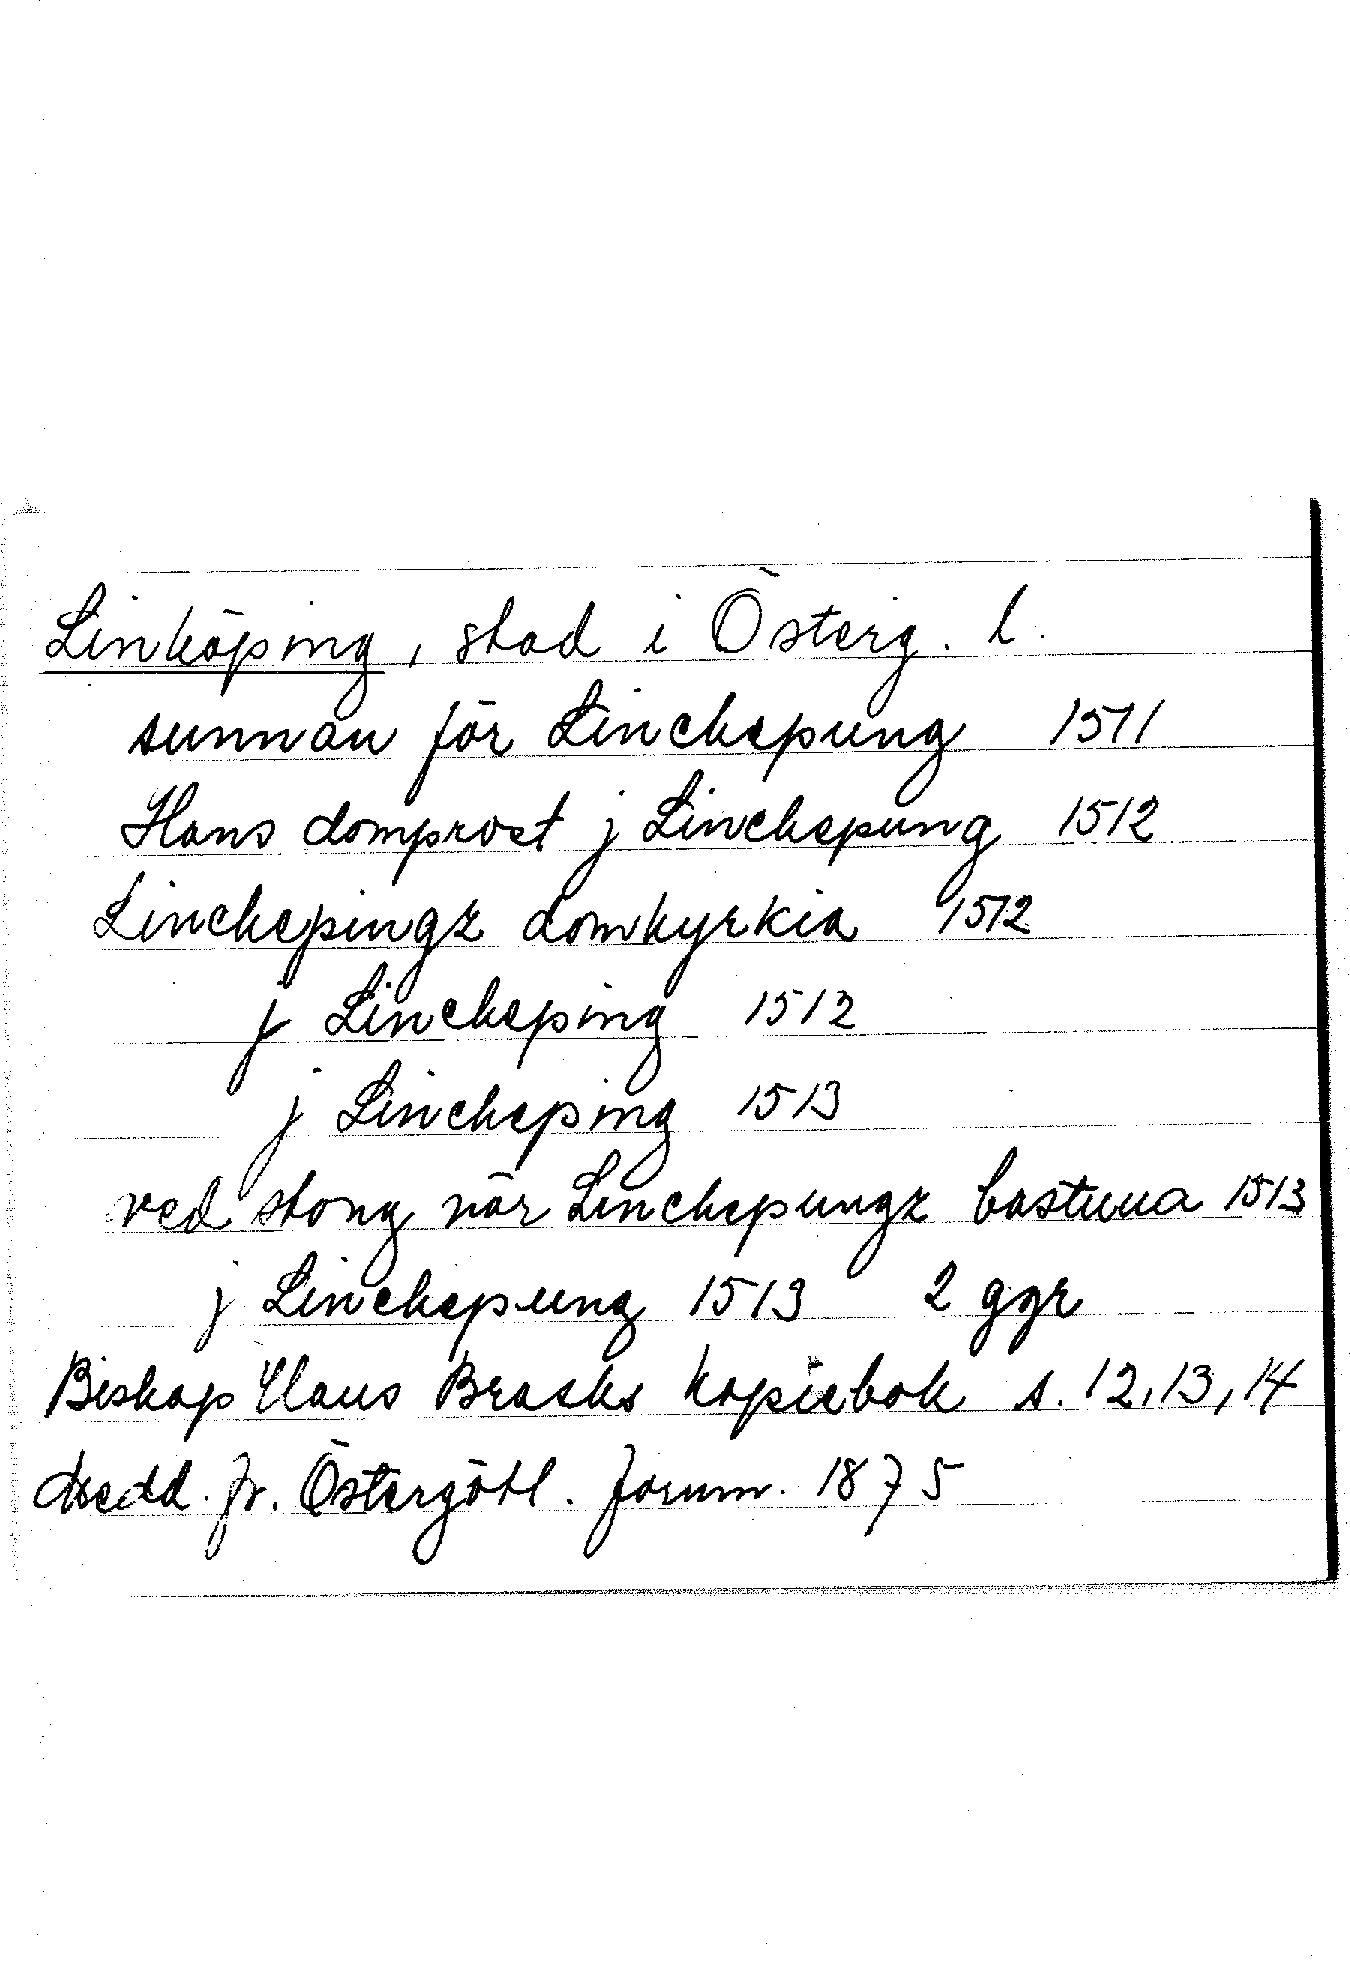 Linköping, stad i Österg. l.
sunnan för Linchepung 1511
Hans domprost j Linchepung 1512
Linchepingz domkyrkia 1512
j Lincheping 1512
j Lincheping 1513
ved stong når Linchepungz bastuua 1513
j Linchepung 1513 2 ggr
Biskop Hans Brasks kopiebok s. 12, 13, 14
Medd. fr. Östergötl. fornm. 1875